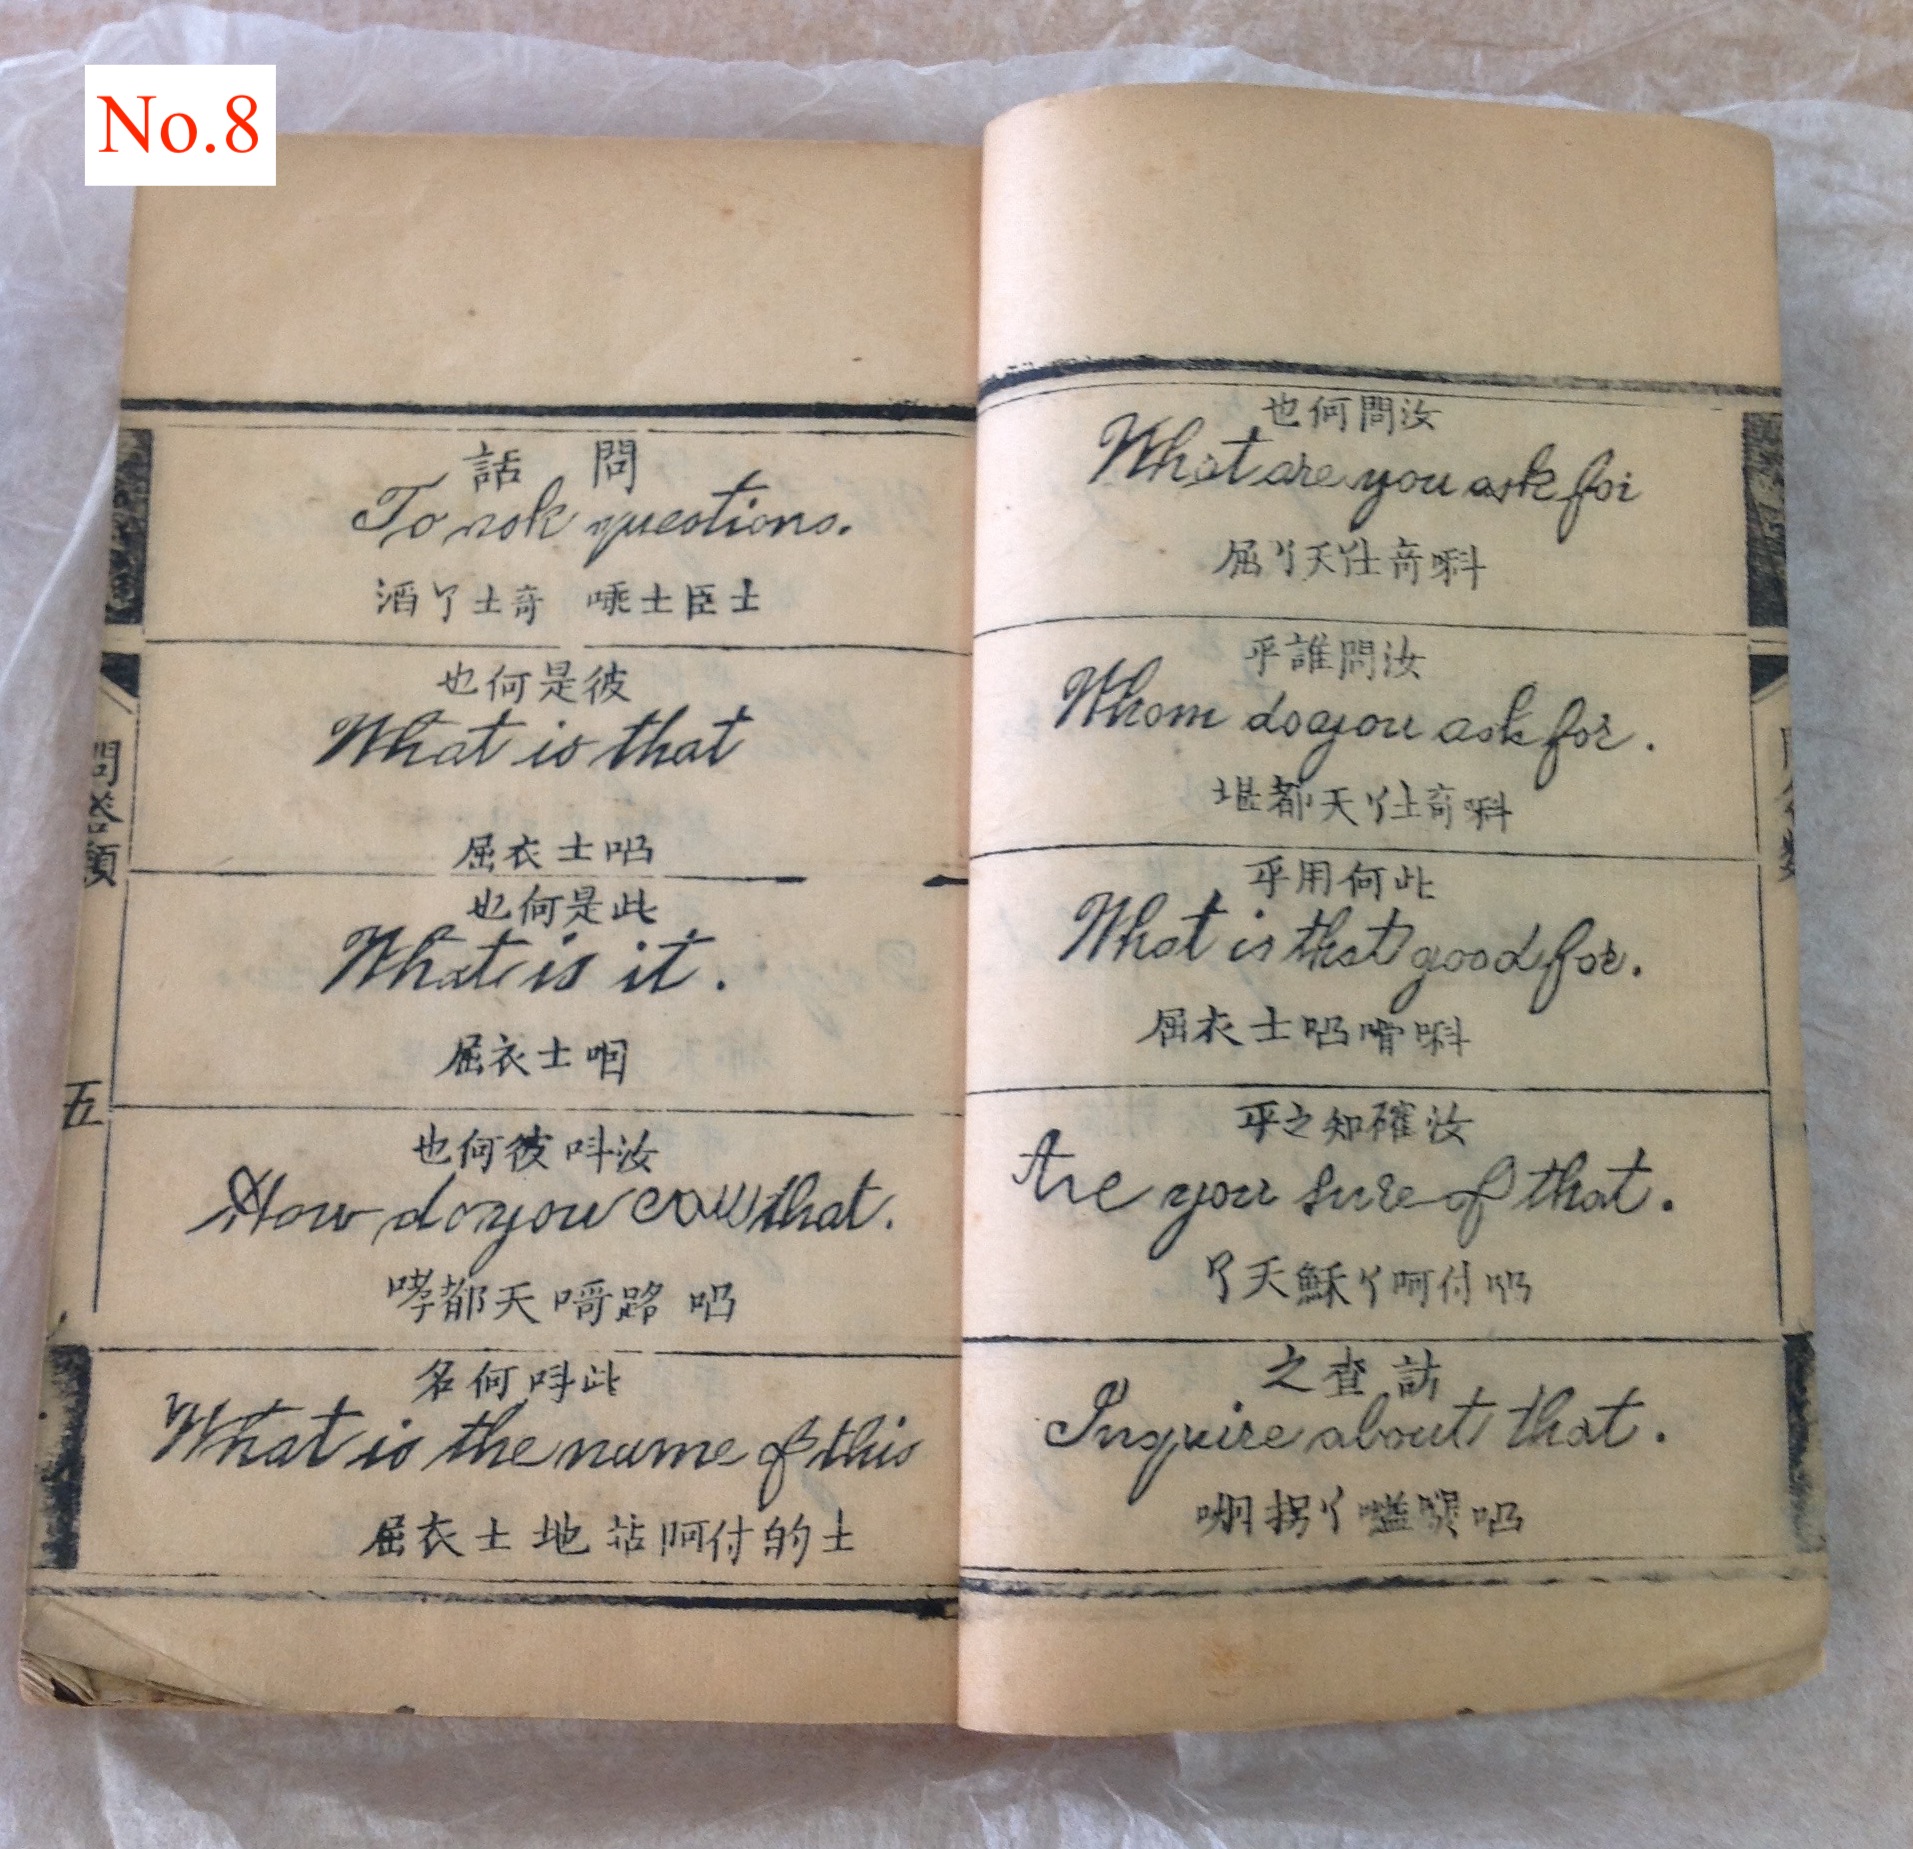 No.8
問話
To ask questions.
滔丫士奇 㖼士臣士
彼是何也
What is that
屈衣士呬
此是何也
What is it.
屈衣士咽
汝呌彼何也
How do you call that.
哮都天嗗路
此呌何名
What is the name of this
屈衣士地 阿付的士
問答類
五
汝問何也
What are you ask for
屈丫天仕奇㖿
汝問誰乎
Whom do you ask for.
堪都天丫仕奇
此何用乎
What is that good for.
屈衣士
汝確知之乎
Are you sure of that.
丫天穌丫呵付
訪查之
Inquire about that.
拐丫嗌